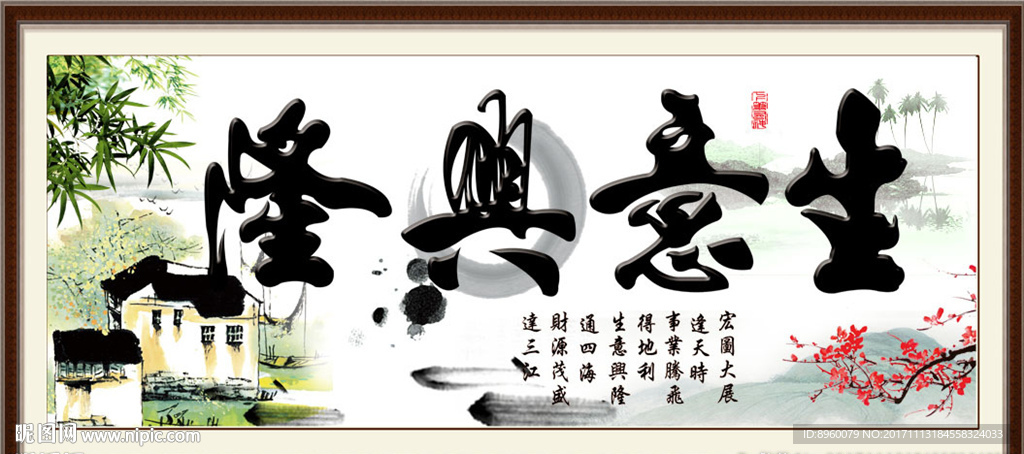 生意興隆
宏圖大展
逢天時
事業騰飛
得地利
生意興隆
通四海
財源茂盛
達三江
昵图网 www.nipic.com
ID:8960079 NO:20171113184558324033